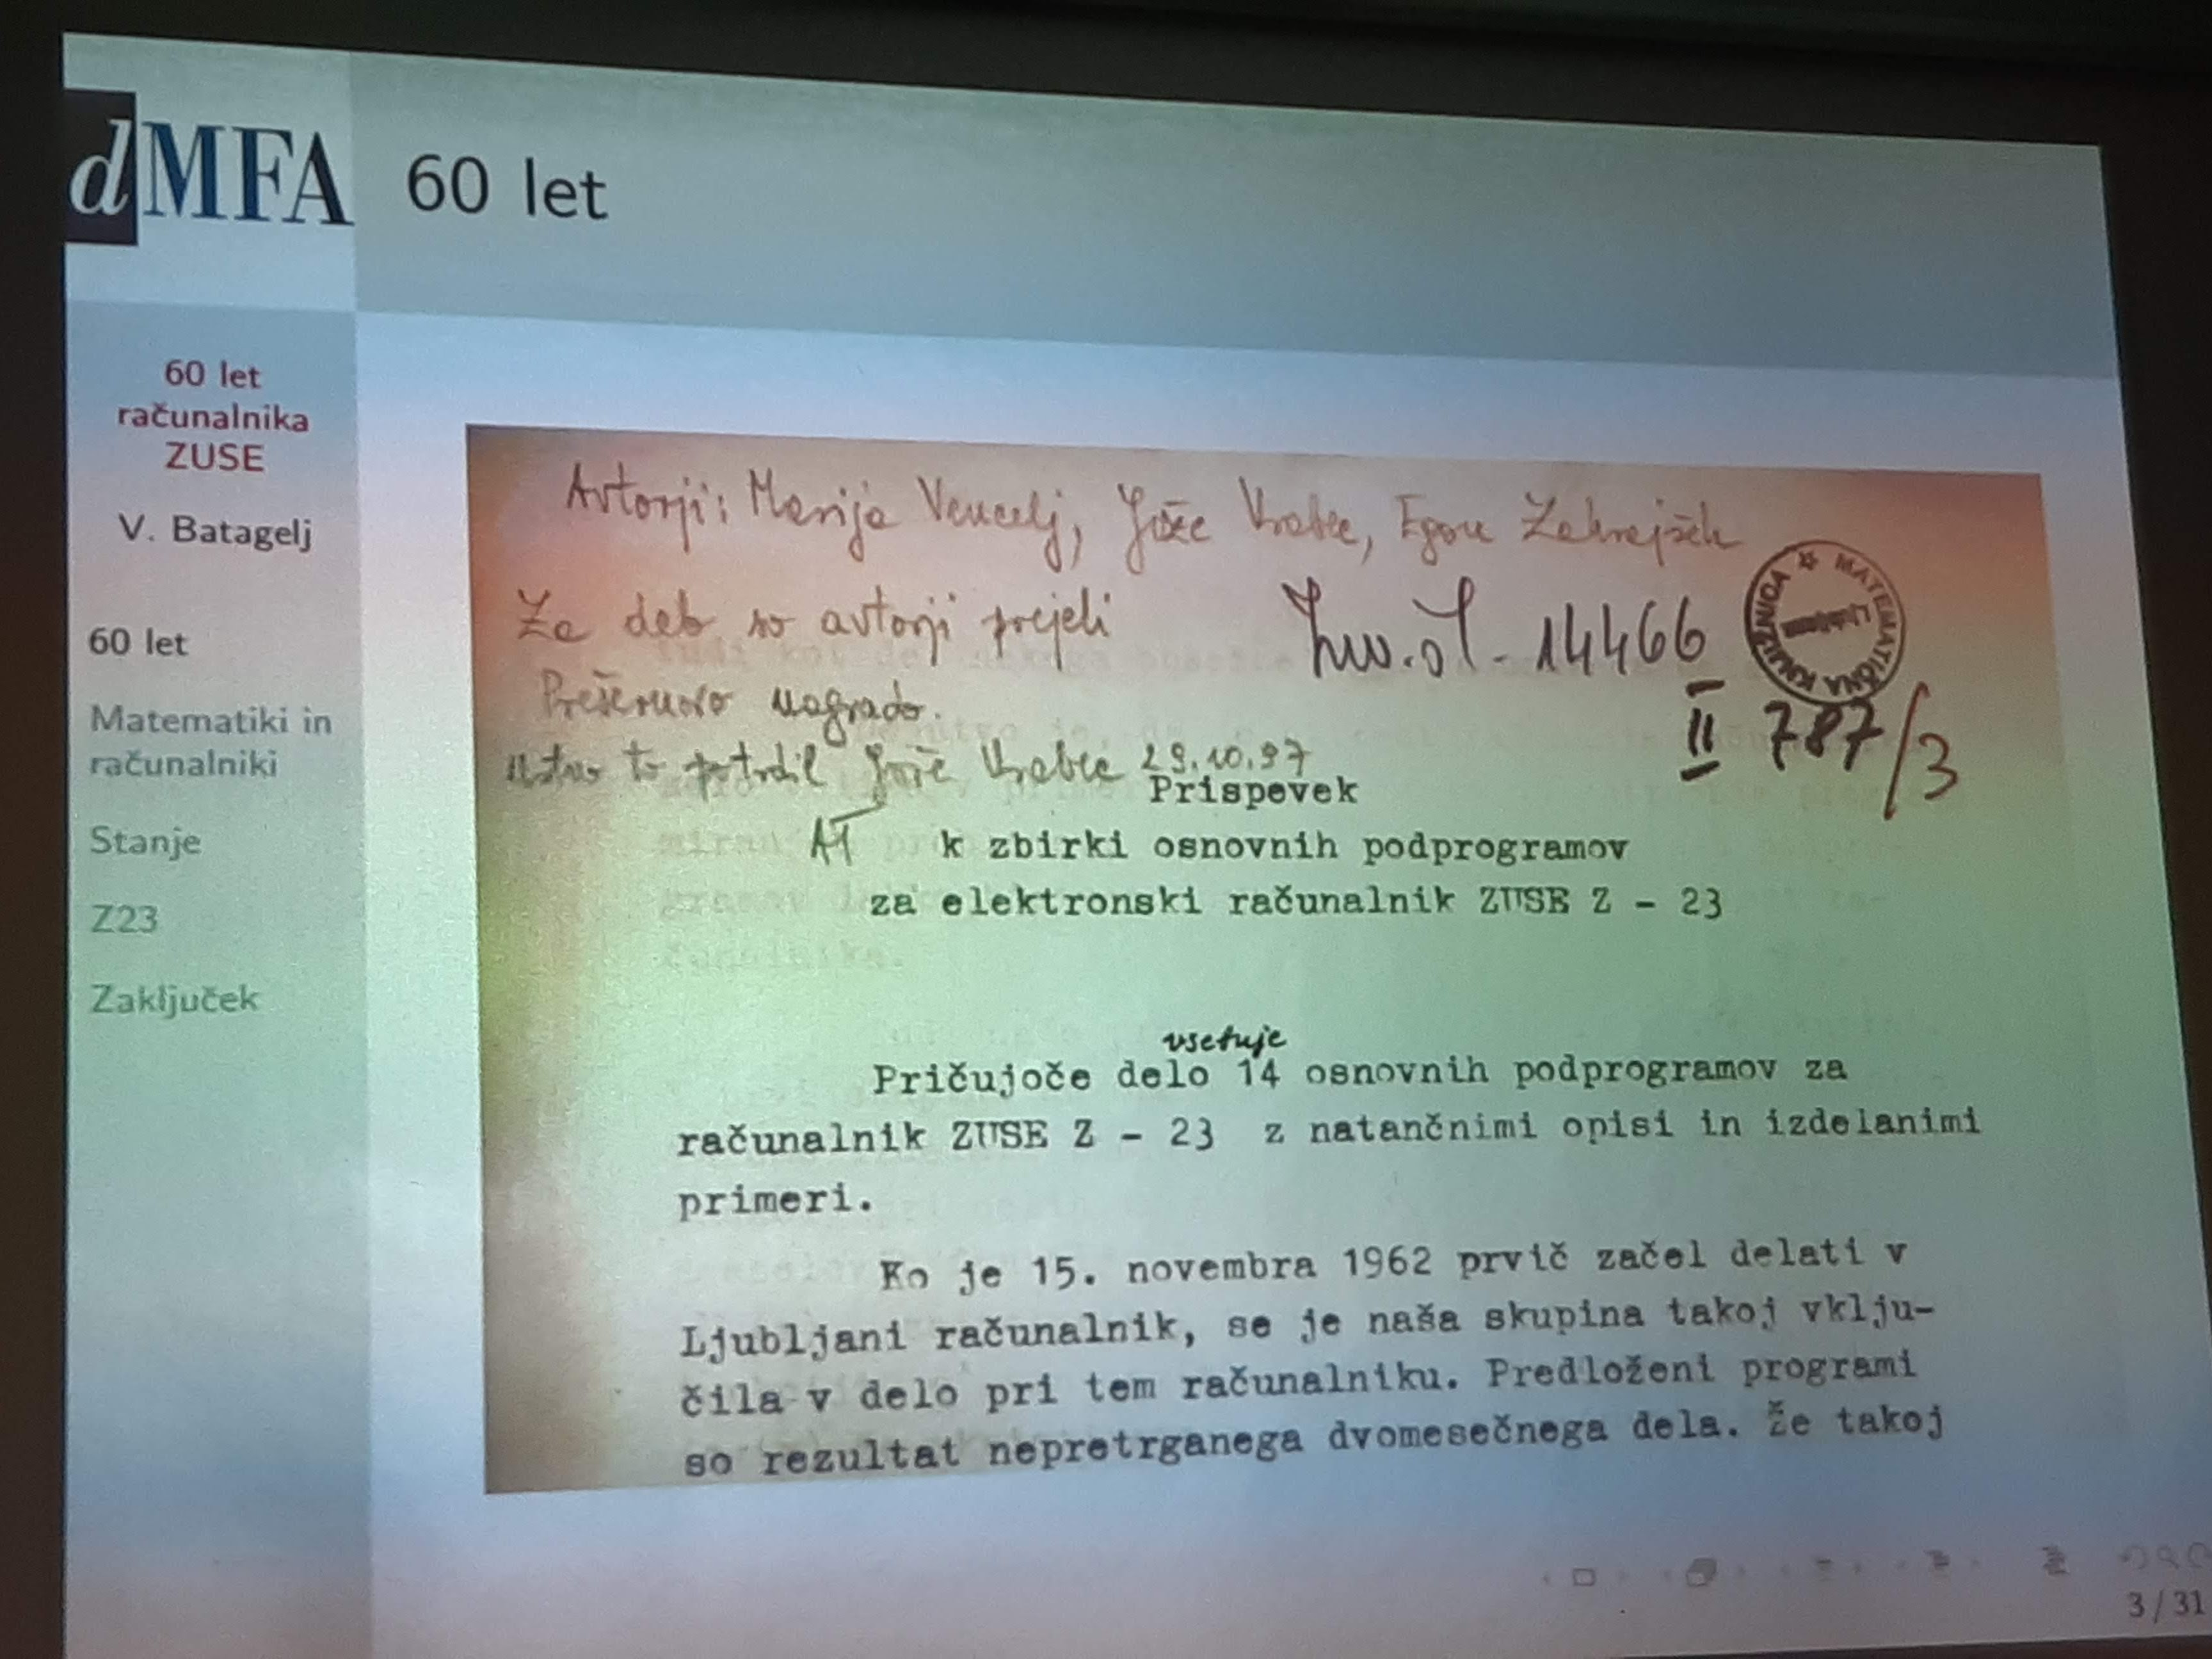 dMFA
60 let
60 let
računalnika
ZUSE
V. Batagelj
60 let
Matematiki in
računalniki
Stanje
Z23
Zaključek
Avtorji: Marija Vencelj, Jože Vrabec, Egon Zakrajšek
Za delo so avtorji prejeli
Prešernovo nagrado.
Ustno to potrdil Jože Vrabec 29.10.97
AT
Inv. št. 14466
MATEMATIČNA KNJIŽNICA
II 787/3
Prispevek
k zbirki osnovnih podprogramov
za elektronski računalnik ZUSE Z - 23
vsebuje
Pričujoče delo 14 osnovnih podprogramov za
računalnik ZUSE Z - 23 z natančnimi opisi in izdelanimi
primeri.
Ko je 15. novembra 1962 prvič začel delati v
Ljubljani računalnik, se je naša skupina takoj vklju-
čila v delo pri tem računalniku. Predloženi programi
so rezultat nepretrganega dvomesečnega dela. Že takoj
3 / 31